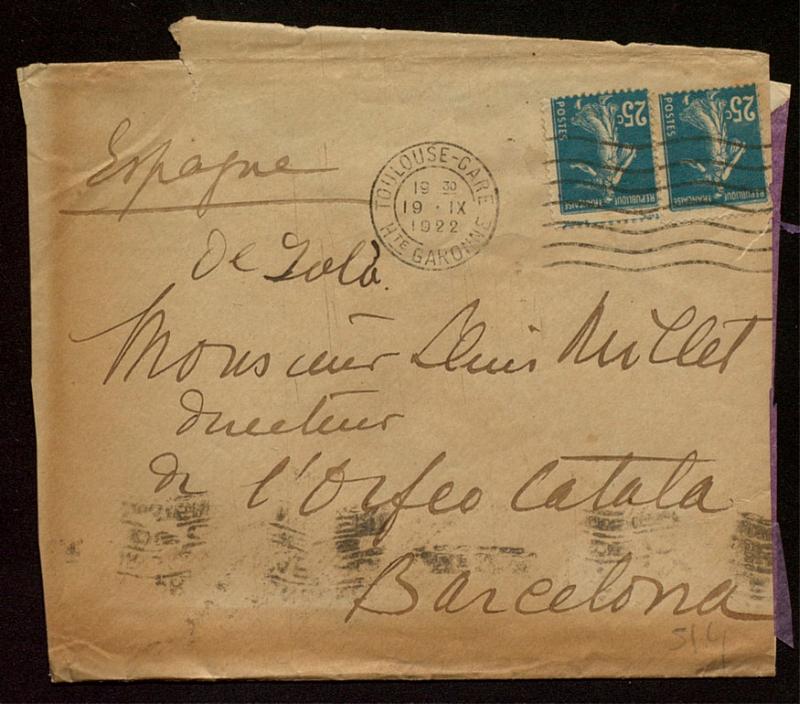 Espagne
TOULOUSE-GARE
19 30
19 · IX
1922
HTE GARONNE
25c
POSTES
REPUBLIQUE FRANÇAISE
25c
POSTES
REPUBLIQUE FRANÇAISE
De Solà.
Monsieur Lluis Millet
directeur
de l'Orfeo Catala
Barcelona
514